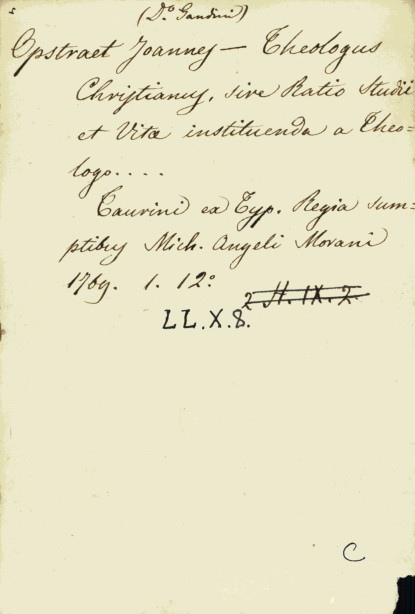 (D.º Gandini)
Opstraet Joannes — Theologus
Christianus, sive Ratio Studii
et Vitæ instituenda a Theo=
logo....
Taurini ex Typ. Regia sum=
ptibus Mich. Angeli Morani
1769. 1. 12º
2 H. IX. 2.
LL.X.8.
C